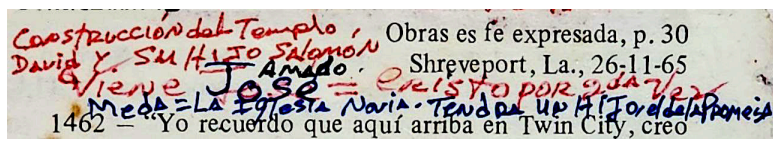 Construcción del Templo,
David Y SU HIJO SALOMÓN
Obras es fe expresada, p. 30
Shreveport, La., 26-11-65
AMADO.
Viene José = CRISTO POR 2da Vez
Meda = LA IglesIA NoviA. TENDRA UN HIJO de la Promesa
1462 – "Yo recuerdo que aquí arriba en Twin City, creo